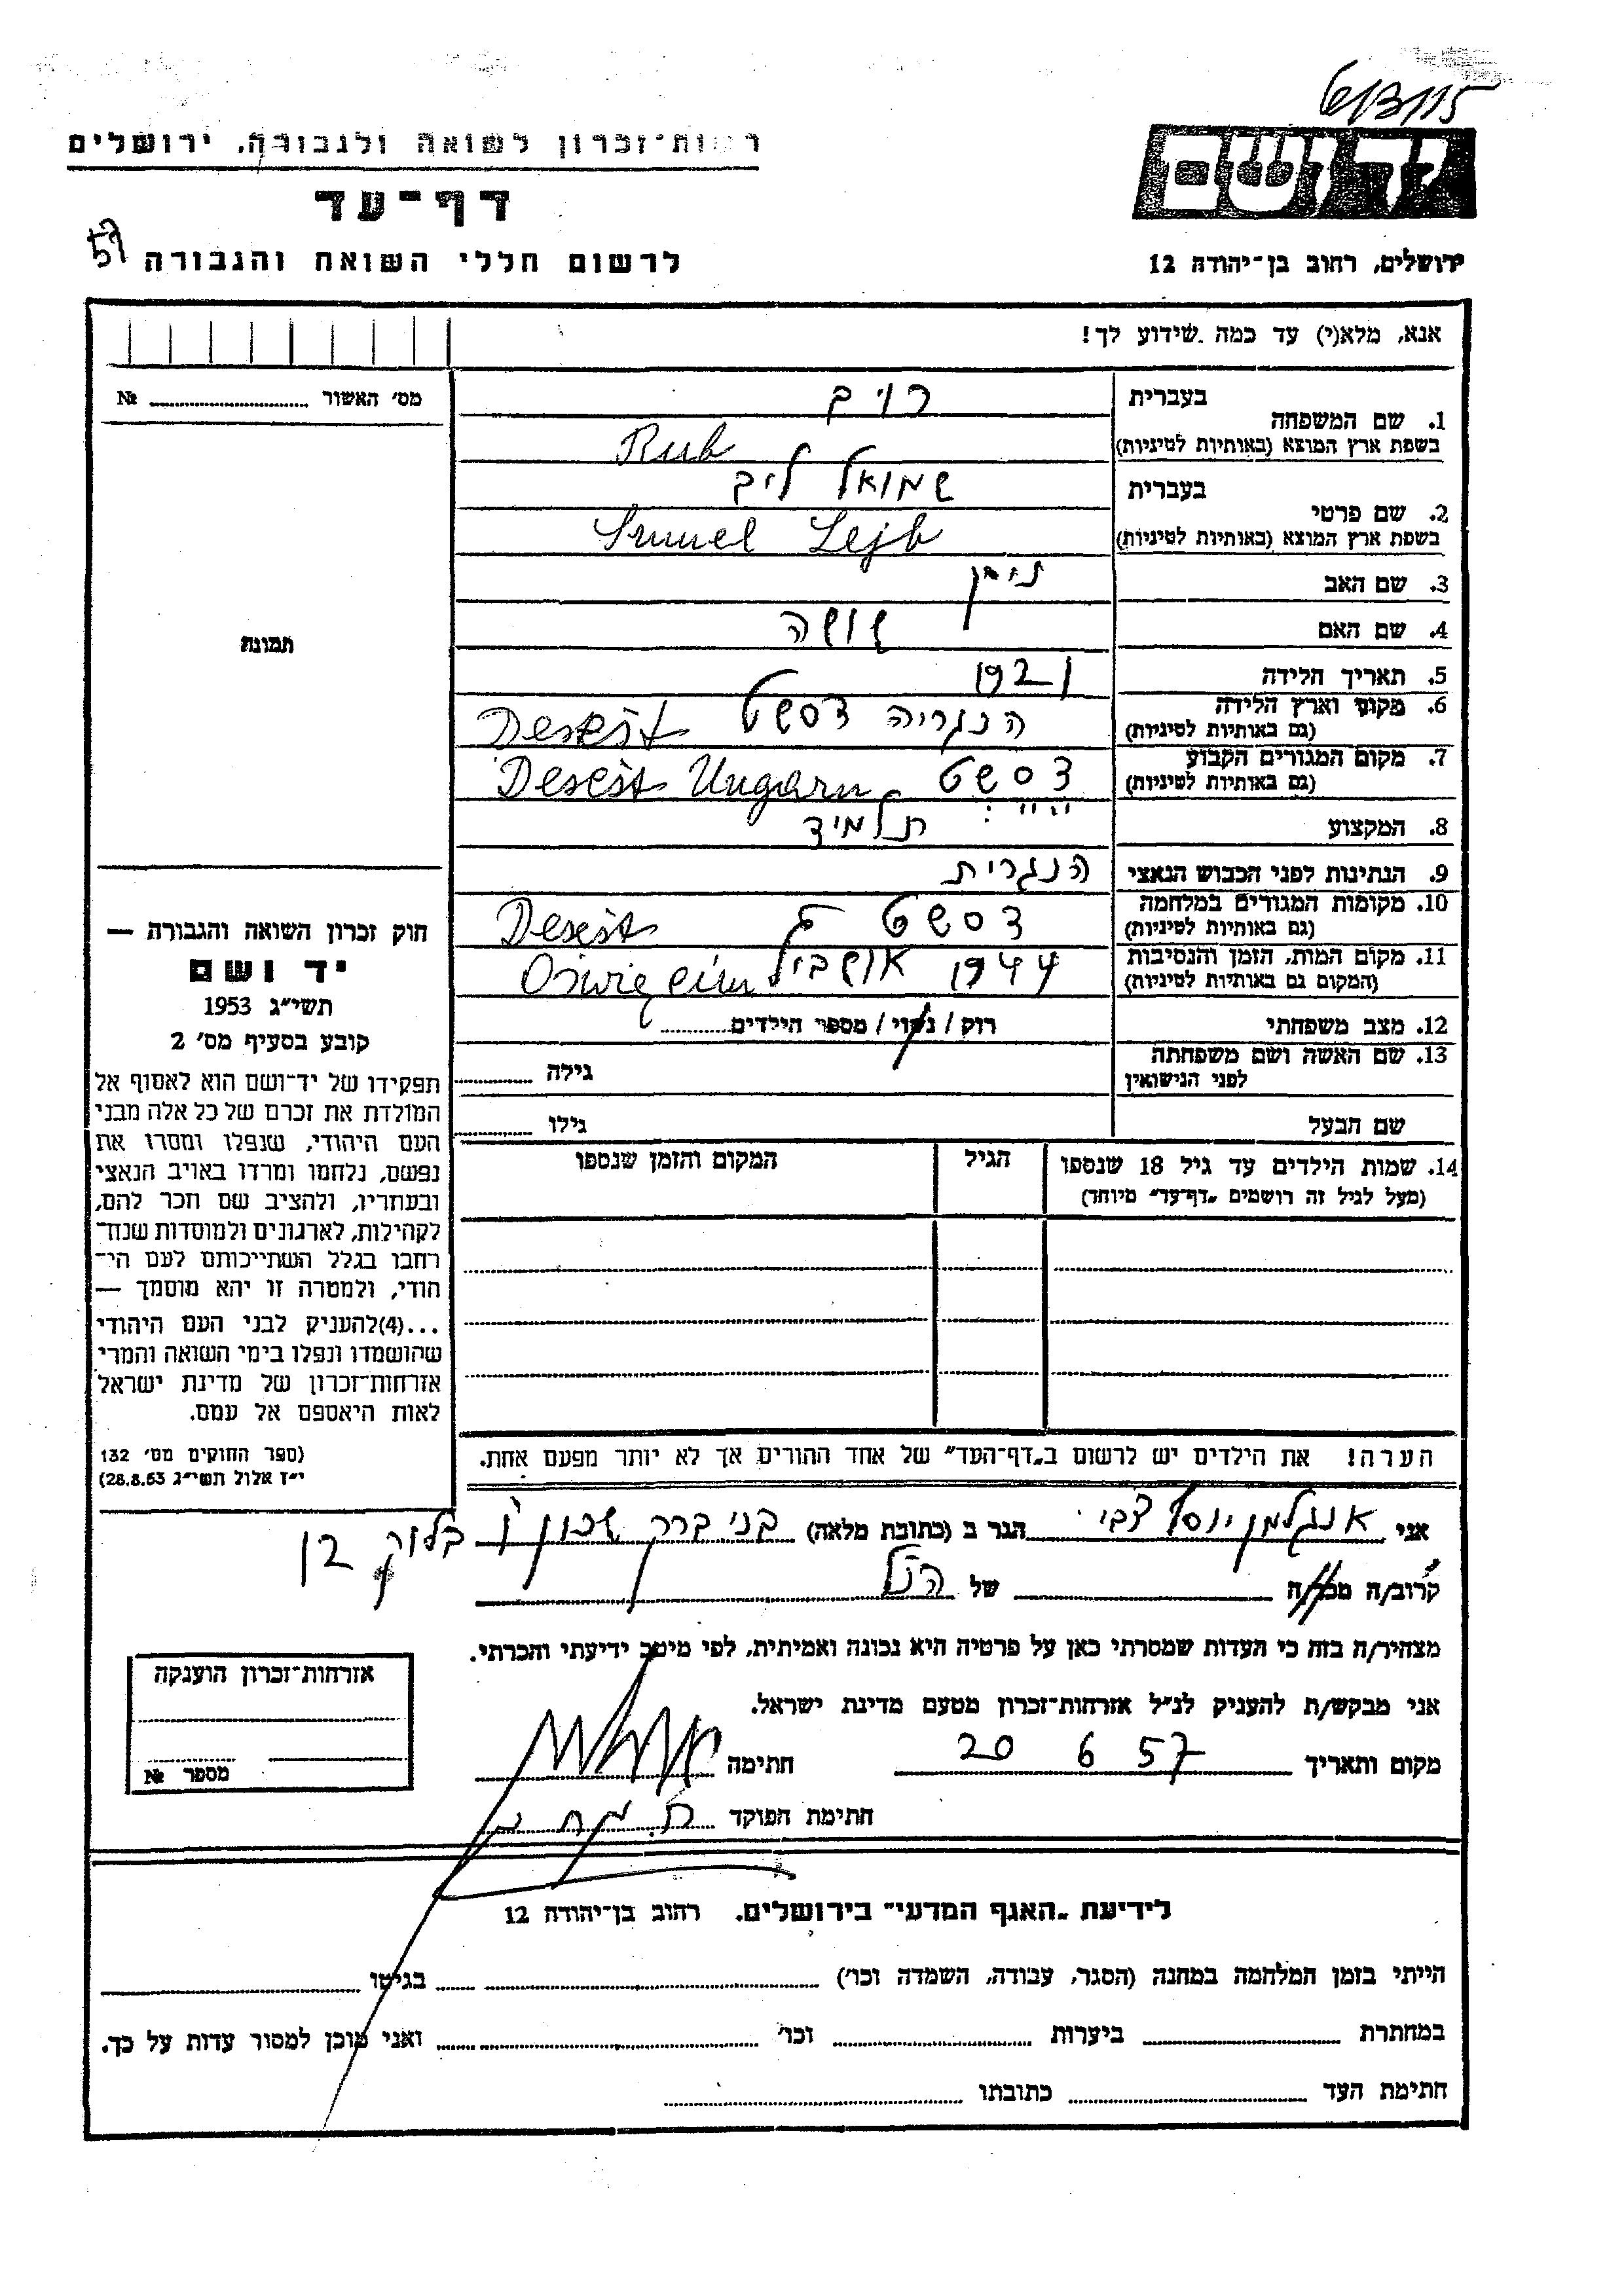 רשות-זכרון לשואה ולגבורה, ירושלים
דף-עד
לרשום חללי השואה והגבורה
ירושלים, רחוב בן-יהודה 12
אנא, מלא(י) עד כמה שידוע לך!
מס׳ האשור № 
בעברית רויב
1. שם המשפחה
בשפת ארץ המוצא (באותיות לטיניות) Rub
בעברית שמואל ליב
2. שם פרטי
בשפת ארץ המוצא (באותיות לטיניות) Smuel Lejb
3. שם האב
4. שם האם שושה
5. תאריך הלידה 1921
6. מקום וארץ הלידה הנגריה דסשט
(גם באותיות לטיניות)
7. מקום המגורים הקבוע דסשט Ungarn
(גם באותיות לטיניות)
8. המקצוע תלמיד
9. הנתינות לפני הכבוש הנאצי הנגרית
10. מקומות המגורים במלחמה דסשט
(גם באותיות לטיניות)
11. מקום המות, הזמן והנסיבות 1944
(המקום גם באותיות לטיניות)
12. מצב משפחתי רוק / נשוי / מספר הילדים
13. שם האשה ושם משפחתה גילה
לפני הנישואין
שם הבעל גילו
14. שמות הילדים עד גיל 18 שנספו הגיל המקום והזמן שנספו
(מעל לגיל זה רושמים „דף-עד" מיוחד)
הערה! את הילדים יש לרשום ב„דף-העד" של אחד ההורים אך לא יותר מפעם אחת.
תמונה
חוק זכרון השואה והגבורה —
יד ושם
תשי״ג 1953
קובע בסעיף מס׳ 2
תפקידו של יד-ושם הוא לאסוף אל
המולדת את זכרם של כל אלה מבני
העם היהודי, שנפלו ומסרו את
נפשם, נלחמו ומרדו באויב הנאצי
ובעוזריו, ולהציב שם וזכר להם,
לקהילות, לארגונים ולמוסדות שנח-
רבו בגלל השתייכותם לעם הי-
הודי, ולמטרה זו יהא מוסמך —
...(4)להעניק לבני העם היהודי
שהושמדו ונפלו בימי השואה והמרי
אזרחות-זכרון של מדינת ישראל
לאות היאספם אל עמם.
(ספר החוקים מס׳ 132
י״ז אלול תשי״ג 28.8.53)
אני אנגלמן יוסף צבי הגר ב (כתובת מלאה) בני ברק שכון ו׳ בלוק
קרוב/ה מכר/ה של הנ״ל
מצהיר/ה בזה כי העדות שמסרתי כאן על פרטיה היא נכונה ואמיתית, לפי מיטב ידיעתי והכרתי.
אני מבקש/ת להעניק לנ״ל אזרחות-זכרון מטעם מדינת ישראל.
מקום ותאריך 20 6 57 חתימה
חתימת הפוקד
אזרחות-זכרון הוענקה
מספר №
לידיעת „האגף המדעי" בירושלים, רחוב בן-יהודה 12
הייתי בזמן המלחמה במחנה (הסגר, עבודה, השמדה וכו׳) בגיטו
במחתרת ביערות וכו׳ ואני מוכן למסור עדות על כך.
חתימת העד כתובתו